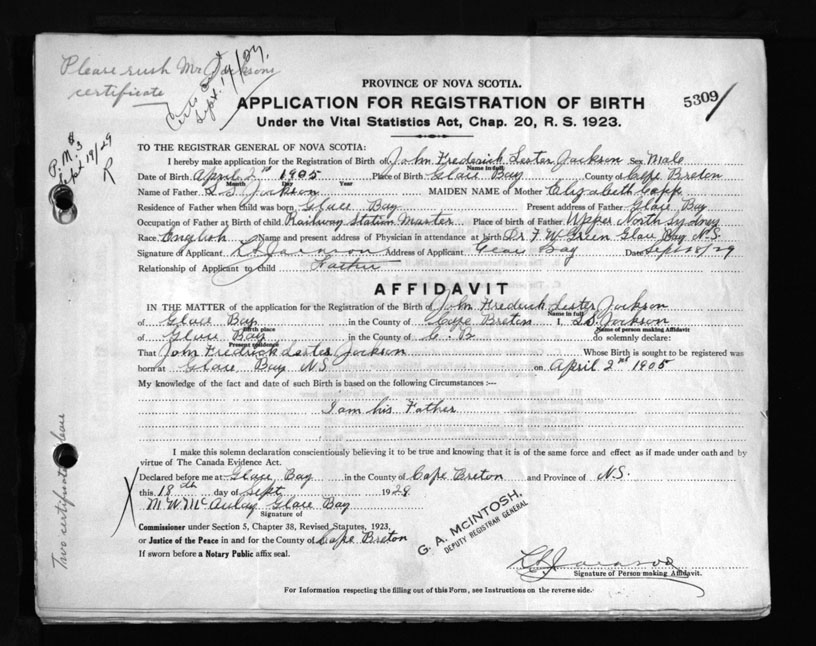 Please rush Mr. Jacksons
certificate
Certs Sent
Sept. 19/29.
P.M. $3
Sept 19/29
R
PROVINCE OF NOVA SCOTIA.
APPLICATION FOR REGISTRATION OF BIRTH
Under the Vital Statistics Act, Chap. 20, R. S. 1923.
5309
TO THE REGISTRAR GENERAL OF NOVA SCOTIA:
I hereby make application for the Registration of Birth of John Frederick Lester Jackson Sex Male
Name in full
Date of Birth April 2nd 1905 Place of Birth Glace Bay County of Cape Breton
Month Day Year
Name of Father L. S. Jackson MAIDEN NAME of Mother Elizabeth Copp
Residence of Father when child was born Glace Bay Present address of Father Glace Bay
Occupation of Father at Birth of child Railway Station Master Place of birth of Father Upper North Sydney
Race English Name and present address of Physician in attendance at birth Dr F W Green Glace Bay N.S.
Signature of Applicant L S Jackson Address of Applicant Glace Bay Date Sept 18/29
Relationship of Applicant to child Father
AFFIDAVIT
IN THE MATTER of the application for the Registration of the Birth of John Frederick Lester Jackson
Name in full
of Glace Bay in the County of Cape Breton I, L.S. Jackson
Birth place Name of person making Affidavit
of Glace Bay in the County of C. B. do solemnly declare:
Present residence
That John Fredrick Lester Jackson Whose Birth is sought to be registered was
born at Glace Bay N.S. on April 2nd 1905
My knowledge of the fact and date of such Birth is based on the following Circumstances :—
I am his Father
I make this solemn declaration conscientiously believing it to be true and knowing that it is of the same force and effect as if made under oath and by
virtue of The Canada Evidence Act.
Declared before me at Glace Bay in the County of Cape Breton and Province of N.S.
this 18th day of Sept. 1929
M. W. McAulay Glace Bay
Signature of
Commissioner under Section 5, Chapter 38, Revised Statutes, 1923,
or Justice of the Peace in and for the County of Cape Breton
If sworn before a Notary Public affix seal.
G. A. McINTOSH,
DEPUTY REGISTRAR GENERAL
L S Jackson
Signature of Person making Affidavit.
For Information respecting the filling out of this Form, see Instructions on the reverse side.
Two certificates please